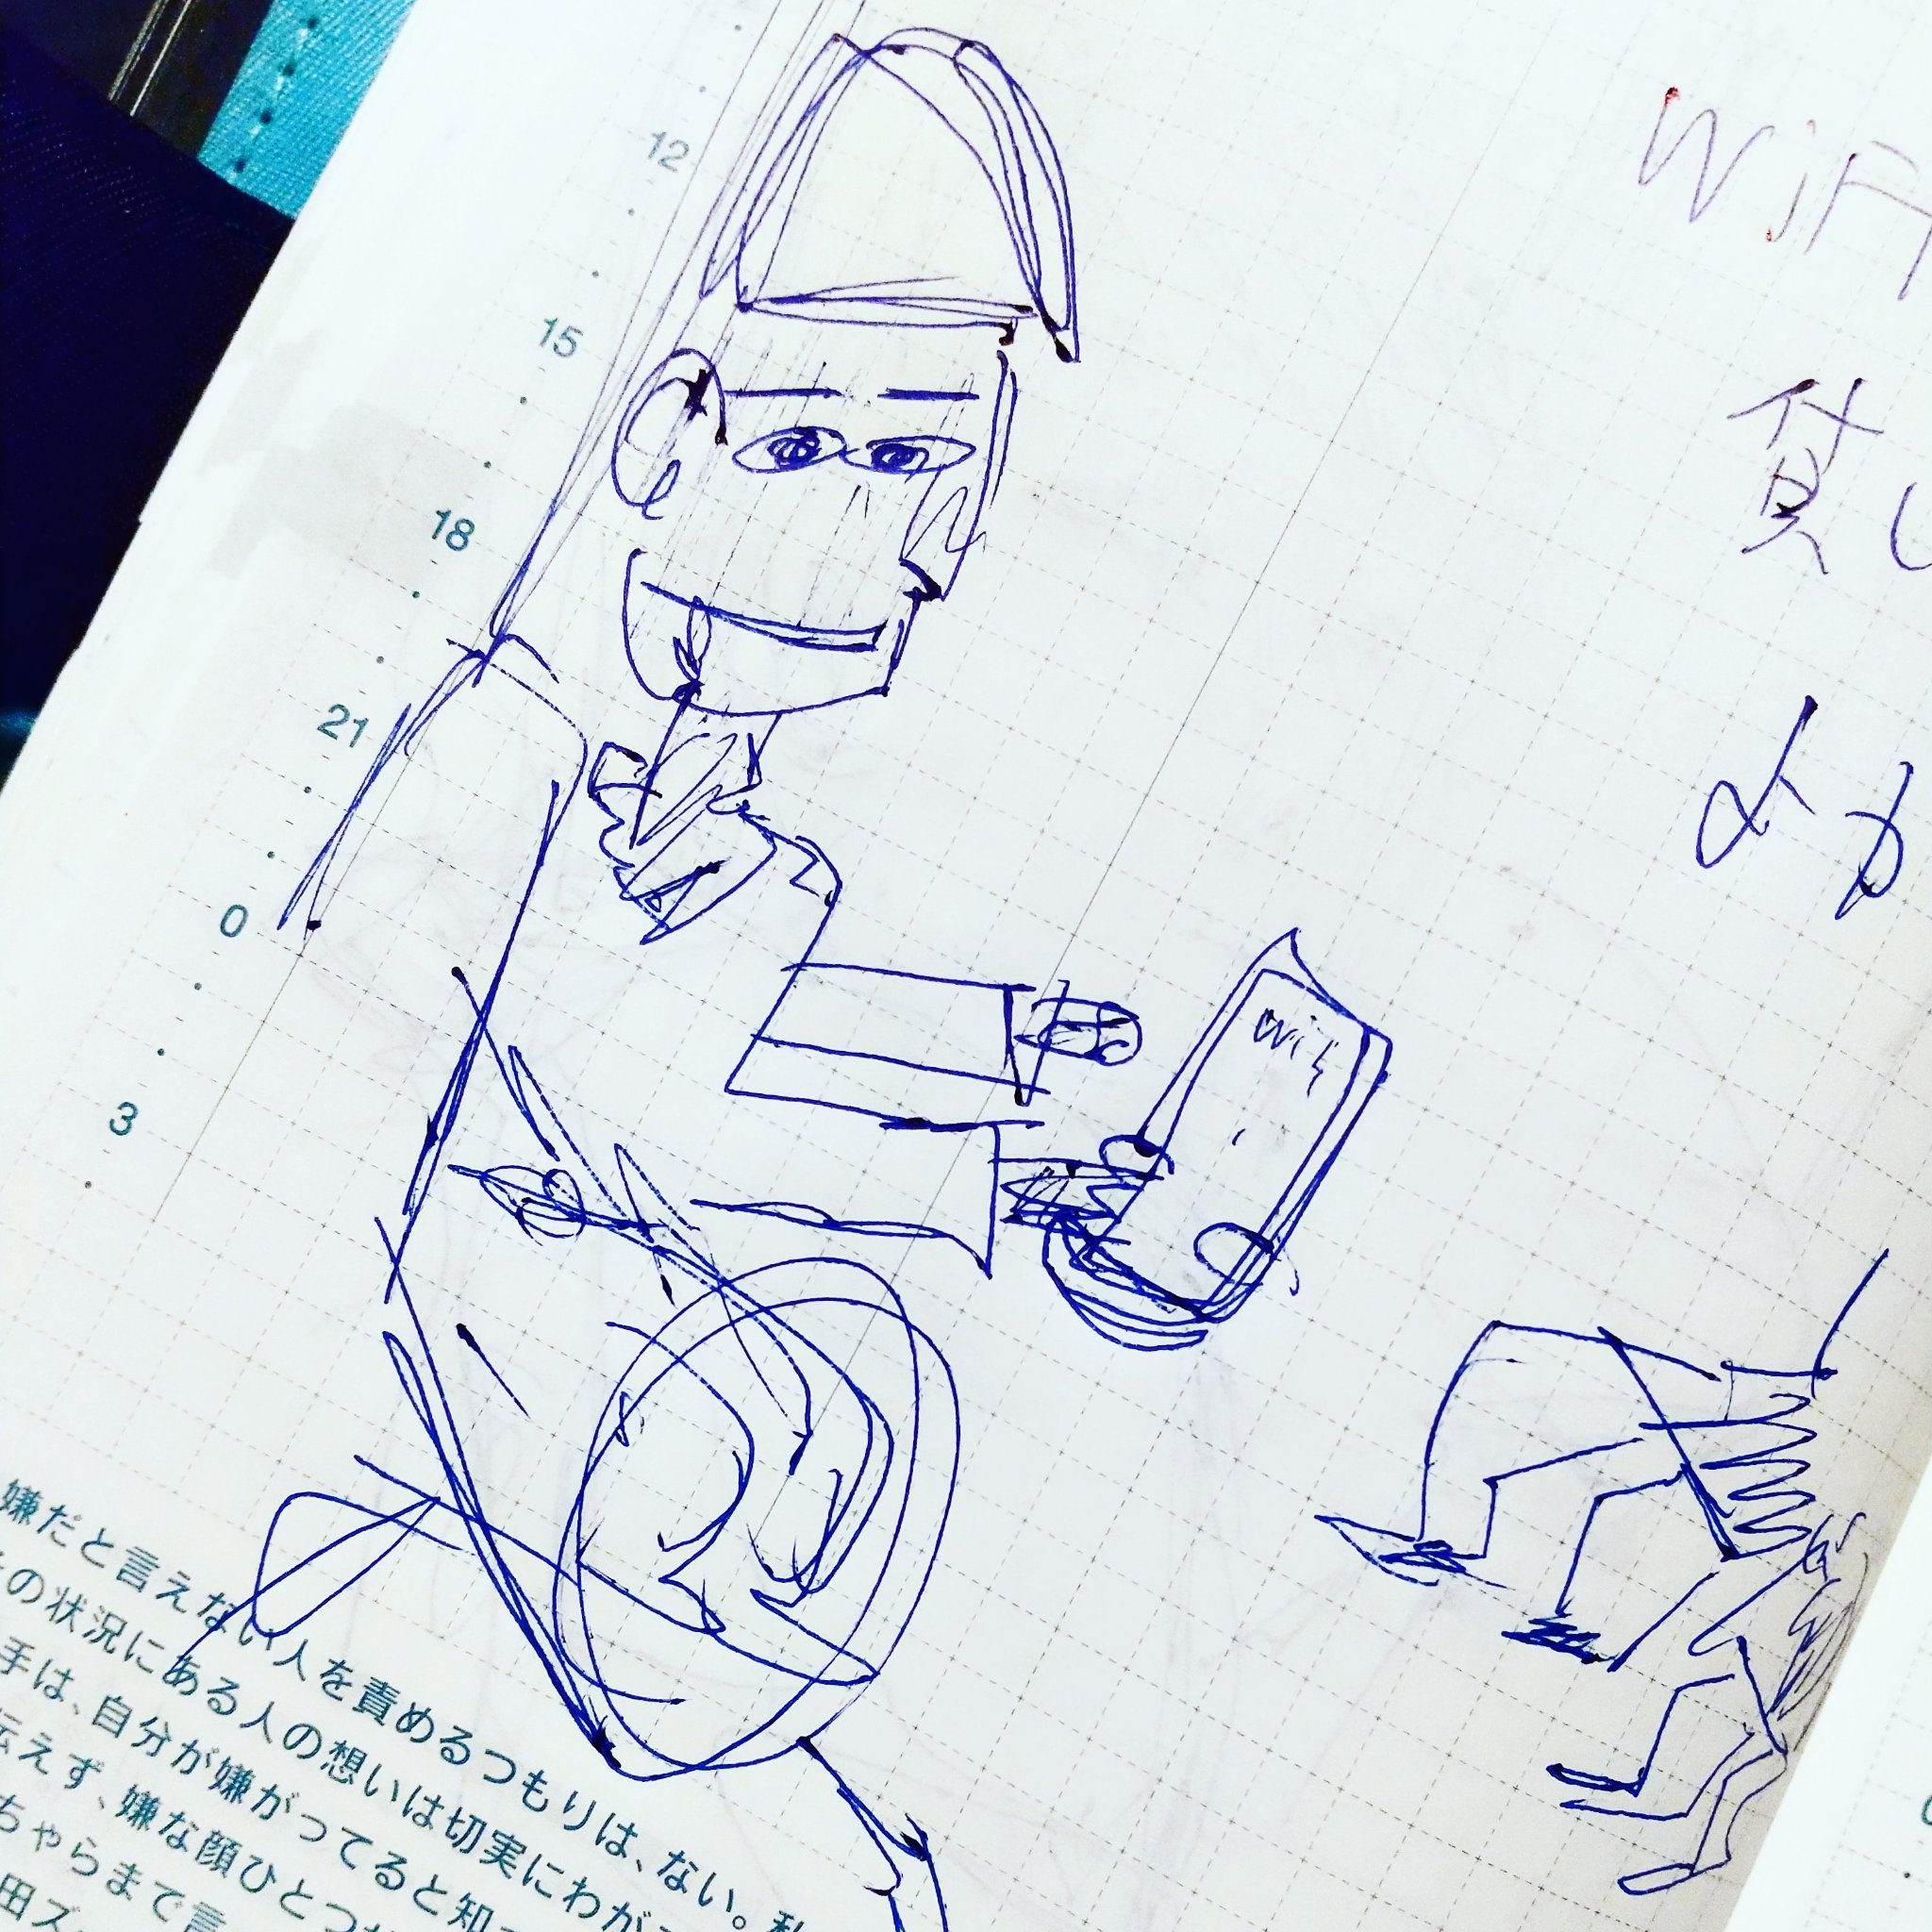 12
15
18
21
0
3
WiF
貸し
よか
wifi
嫌だと言えない人を責めるつもりは、ない。私
の状況にある人の想いは切実にわが
手は、自分が嫌がってると知
伝えず、嫌な顔ひとつ
ちゃらまで言
田ズ